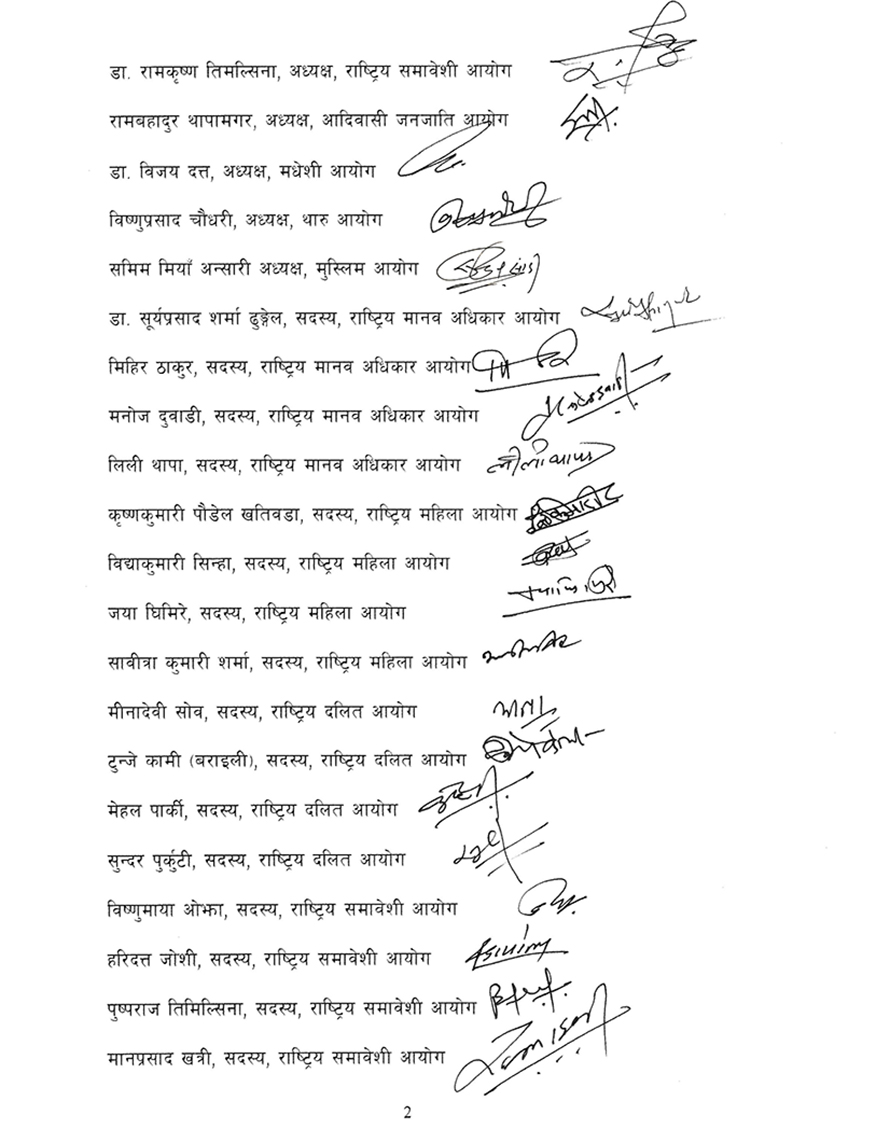 डा. रामकृष्ण तिमल्सिना, अध्यक्ष, राष्ट्रिय समावेशी आयोग
रामबहादुर थापामगर, अध्यक्ष, आदिवासी जनजाति आयोग
डा. विजय दत्त, अध्यक्ष, मधेशी आयोग
विष्णुप्रसाद चौधरी, अध्यक्ष, थारु आयोग
समिम मियाँ अन्सारी अध्यक्ष, मुस्लिम आयोग
डा. सूर्यप्रसाद शर्मा ढुङ्गेल, सदस्य, राष्ट्रिय मानव अधिकार आयोग
मिहिर ठाकुर, सदस्य, राष्ट्रिय मानव अधिकार आयोग
मनोज दुवाडी, सदस्य, राष्ट्रिय मानव अधिकार आयोग
लिली थापा, सदस्य, राष्ट्रिय मानव अधिकार आयोग
कृष्णकुमारी पौडेल खतिवडा, सदस्य, राष्ट्रिय महिला आयोग
विद्याकुमारी सिन्हा, सदस्य, राष्ट्रिय महिला आयोग
जया घिमिरे, सदस्य, राष्ट्रिय महिला आयोग
सावीत्रा कुमारी शर्मा, सदस्य, राष्ट्रिय महिला आयोग
मीनादेवी सोव, सदस्य, राष्ट्रिय दलित आयोग
टुन्जे कामी (बराइली), सदस्य, राष्ट्रिय दलित आयोग
मेहल पार्की, सदस्य, राष्ट्रिय दलित आयोग
सुन्दर पुर्कुटी, सदस्य, राष्ट्रिय दलित आयोग
विष्णुमाया ओझा, सदस्य, राष्ट्रिय समावेशी आयोग
हरिदत्त जोशी, सदस्य, राष्ट्रिय समावेशी आयोग
पुष्पराज तिमिल्सिना, सदस्य, राष्ट्रिय समावेशी आयोग
मानप्रसाद खत्री, सदस्य, राष्ट्रिय समावेशी आयोग
2